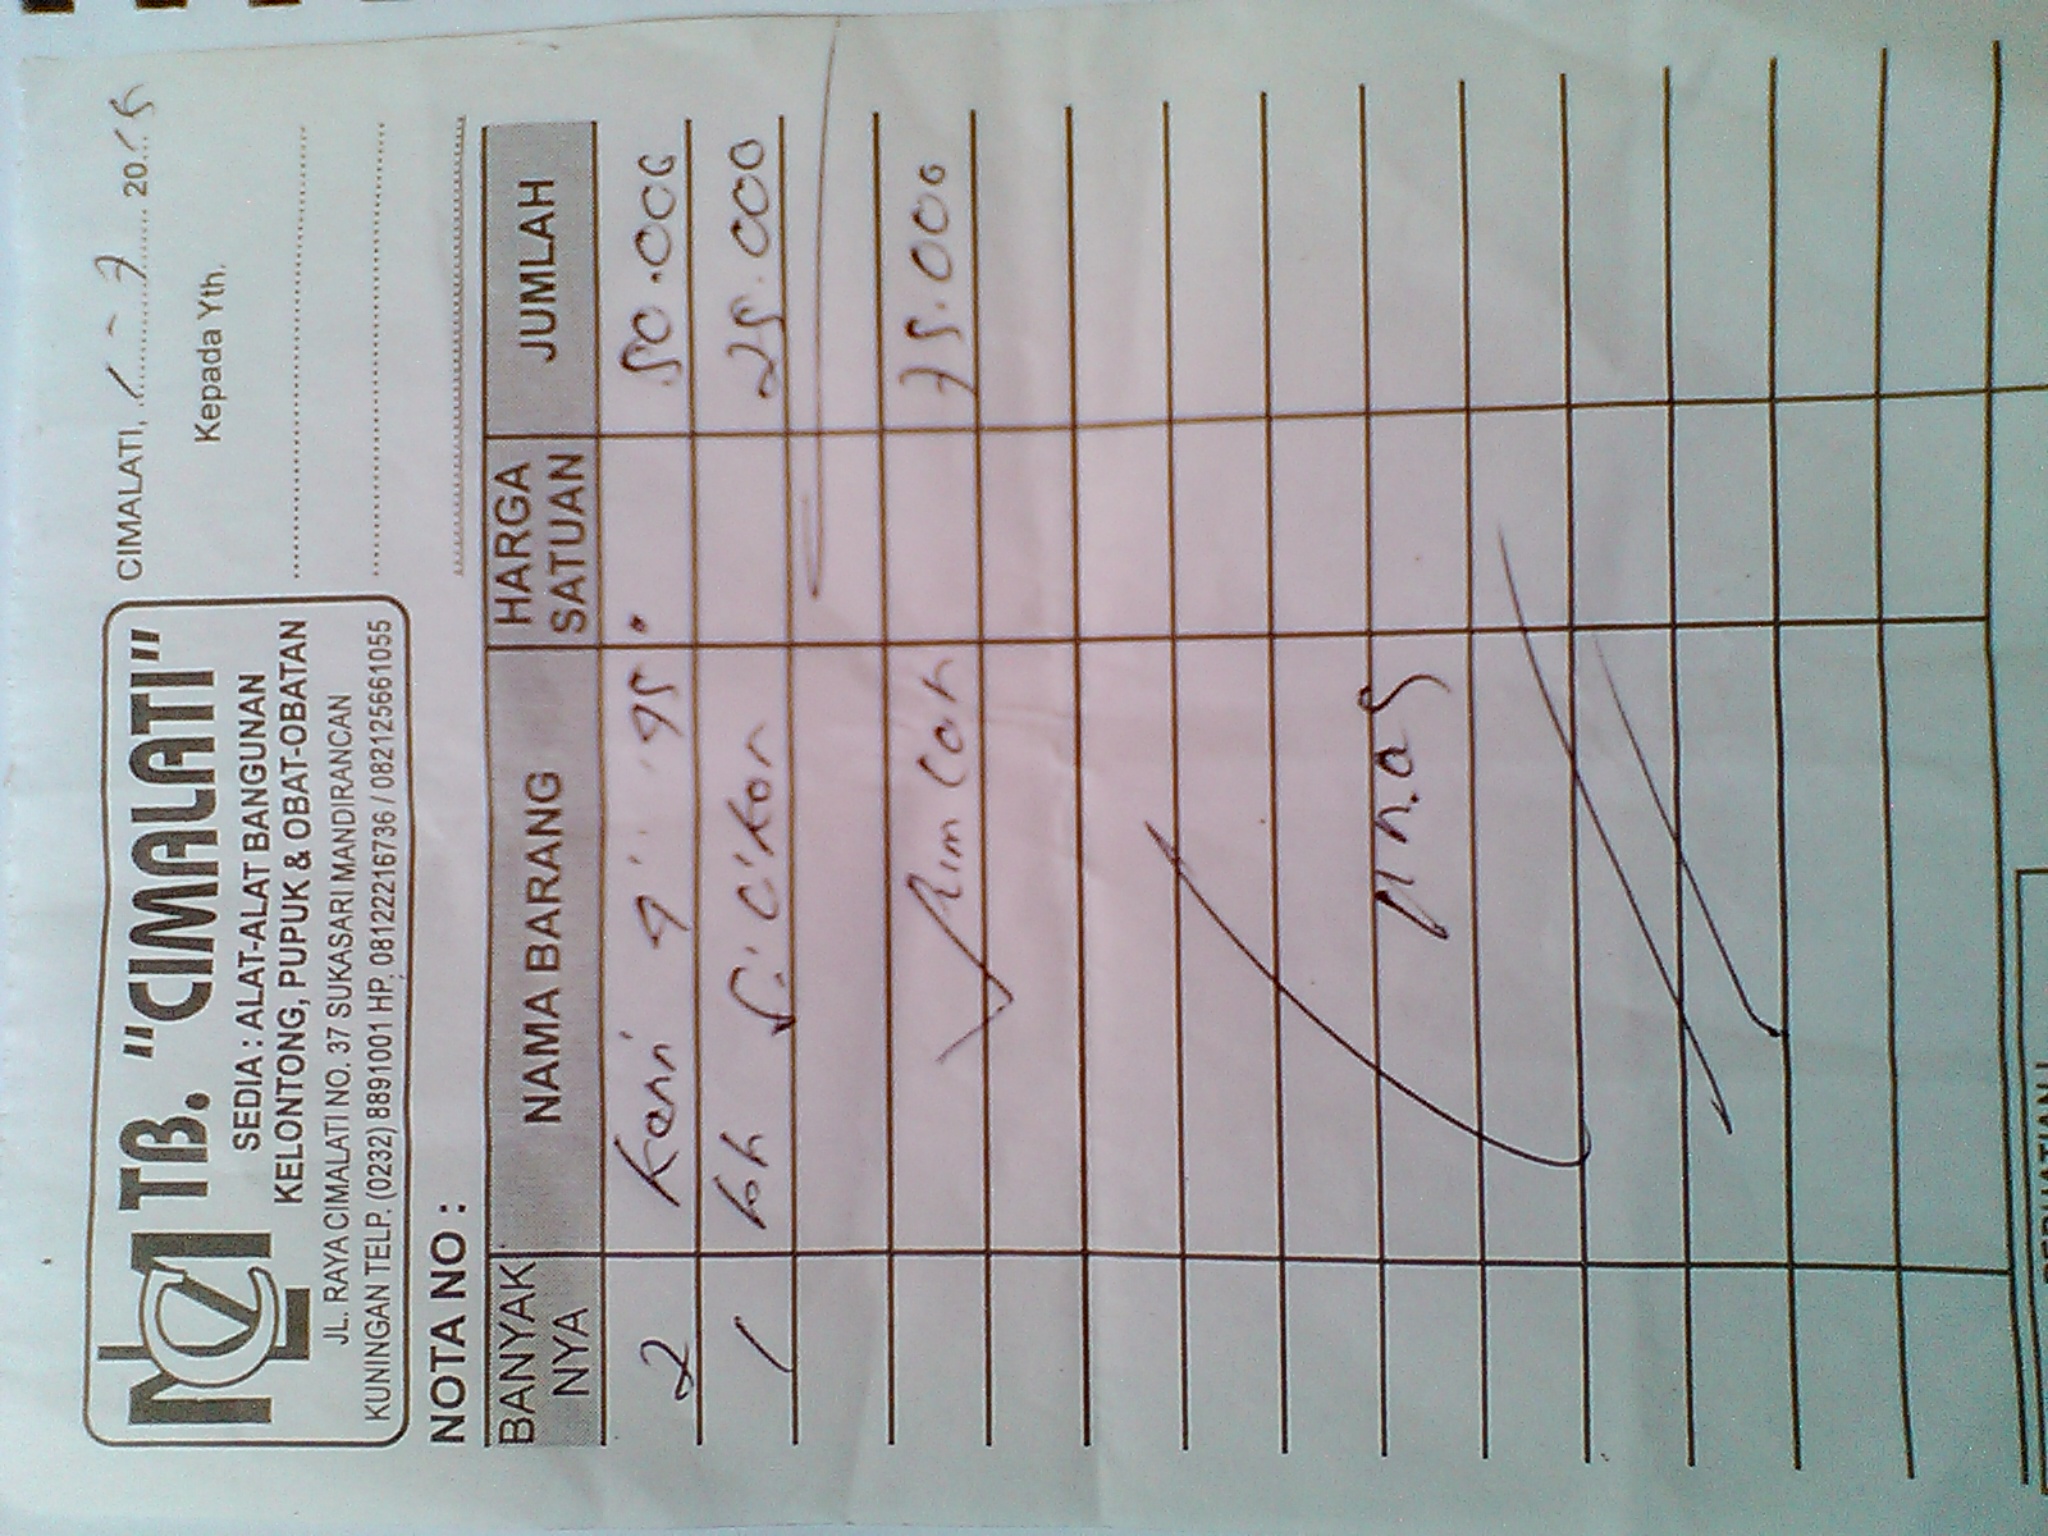 TB. "CIMALATI"
SEDIA : ALAT-ALAT BANGUNAN
KELONTONG, PUPUK & OBAT-OBATAN
JL. RAYA CIMALATI NO. 37 SUKASARI MANDIRANCAN
KUNINGAN TELP. (0232) 8891001 HP. 081222216736 / 082125661055
CIMALATI, 1 - 7 2015
Kepada Yth.
NOTA NO :
BANYAK NYA NAMA BARANG HARGA SATUAN JUMLAH
2 50.000
1 bh 25.000
75.000